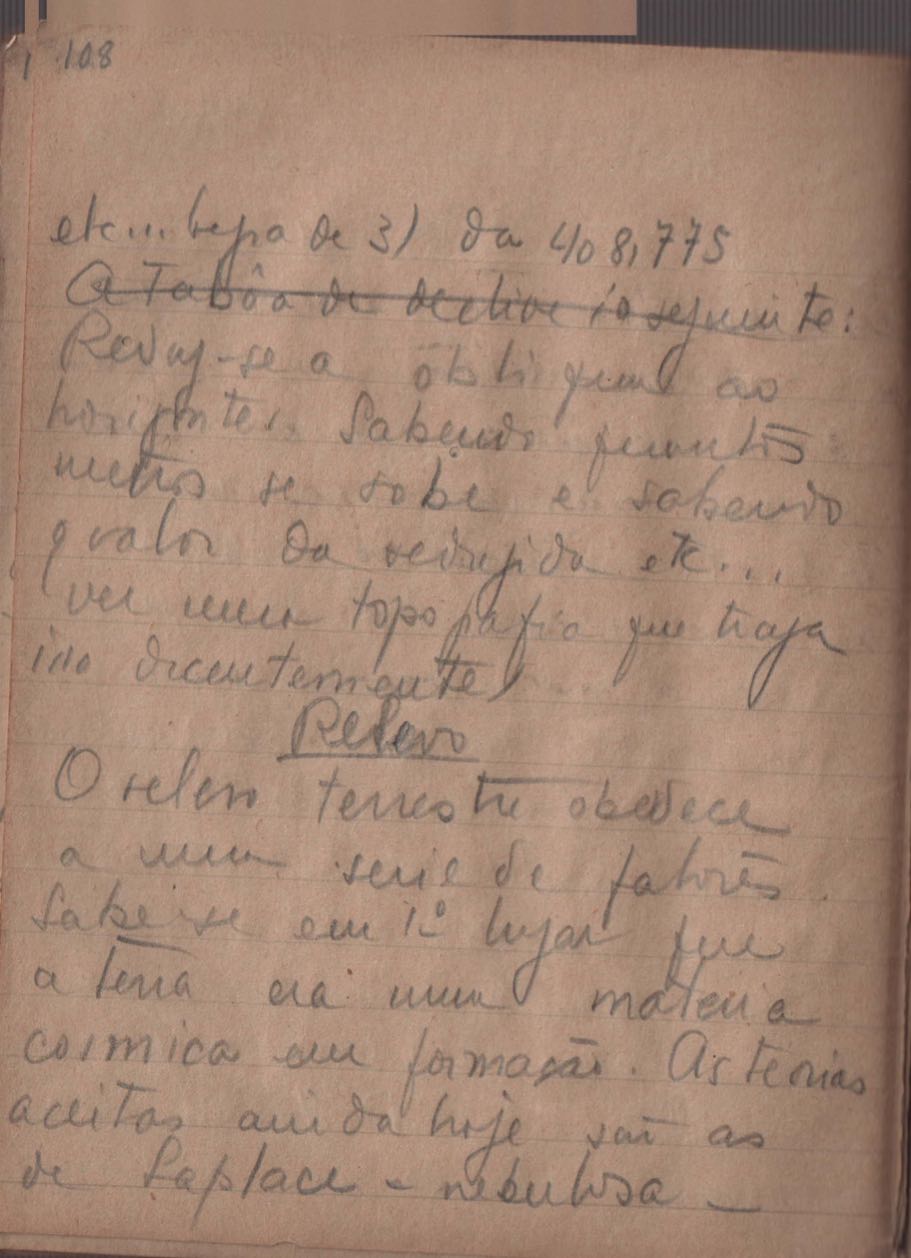 108
etc... regra de 3) da 408,775
A Tabôa de declive é a seguinte:
Reduz-se a obliqua ao
horizonte. Sabendo quantos
metros se sobe e sabendo
o valor da reduzida etc...
(ver uma topografia que traga
isso decentemente)
Relevo
O relevo terrestre obedece
a uma serie de fatores.
Sabe-se em 1º lugar que
a terra era uma materia
cosmica em formação. As teorias
aceitas ainda hoje são as
de Laplace - nebulosa -